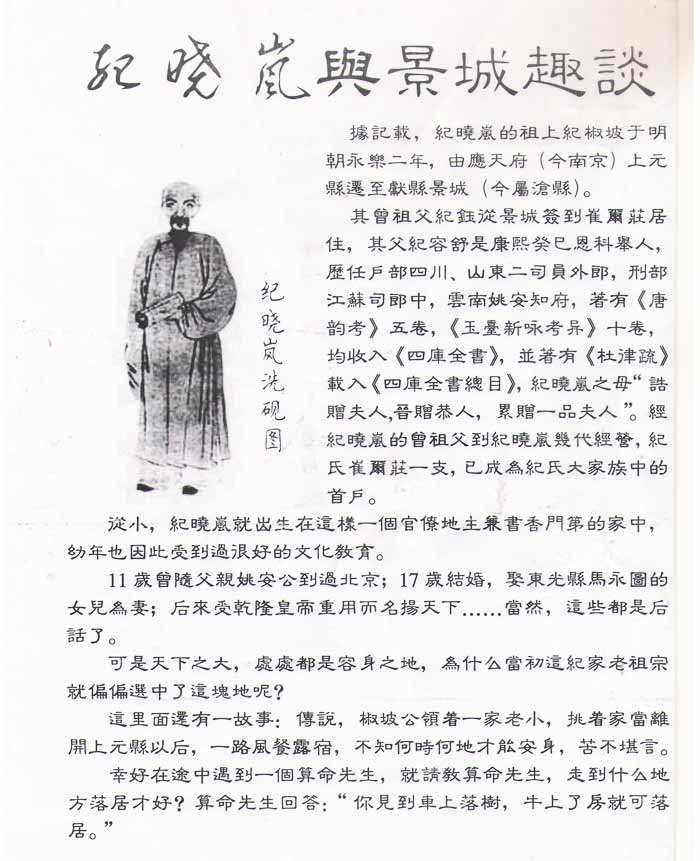 紀晓嵐與景城趣談
據記載，紀曉嵐的祖上紀椒坡于明
朝永樂二年，由應天府（今南京）上元
縣遷至獻縣景城（今屬滄縣）。
其曾祖父紀鈺從景城簽到崔爾莊居
住，其父紀容舒是康熙癸巳恩科舉人，
歷任戶部四川、山東二司員外郎，刑部
江蘇司郎中，雲南姚安知府，著有《唐
韵考》五卷，《玉臺新咏考异》十卷，
均收入《四庫全書》，並著有《杜律疏》
載入《四庫全書總目》，紀曉嵐之母“誥
贈夫人，晉贈恭人，累贈一品夫人”。經
紀曉嵐的曾祖父到紀曉嵐幾代經營，紀
氏崔爾莊一支，已成為紀氏大家族中的
首戶。
纪晓岚洗砚图
從小，紀曉嵐就出生在這樣一個官僚地主兼書香門第的家中，
幼年也因此受到過很好的文化教育。
11歲曾隨父親姚安公到過北京；17歲結婚，娶東光縣馬永圖的
女兒為妻；后來受乾隆皇帝重用而名揚天下……當然，這些都是后
話了。
可是天下之大，處處都是容身之地，為什么當初這紀家老祖宗
就偏偏選中了這塊地呢？
這里面還有一故事：傳說，椒坡公領着一家老小，挑着家當離
開上元縣以后，一路風餐露宿，不知何時何地才能安身，苦不堪言。
幸好在途中遇到一個算命先生，就請教算命先生，走到什么地
方落居才好？算命先生回答：“你見到車上落樹，牛上了房就可落
居。”